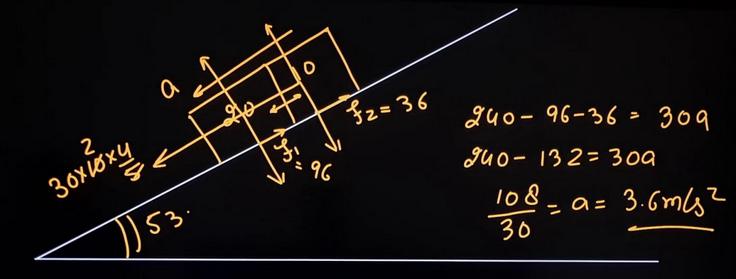 a
20
10
f₂ = 36
f₁ = 96
30×10×4/5
2
53.
240 - 96 - 36 = 30a
240 - 132 = 30a
108/30 = a = 3.6m/s²